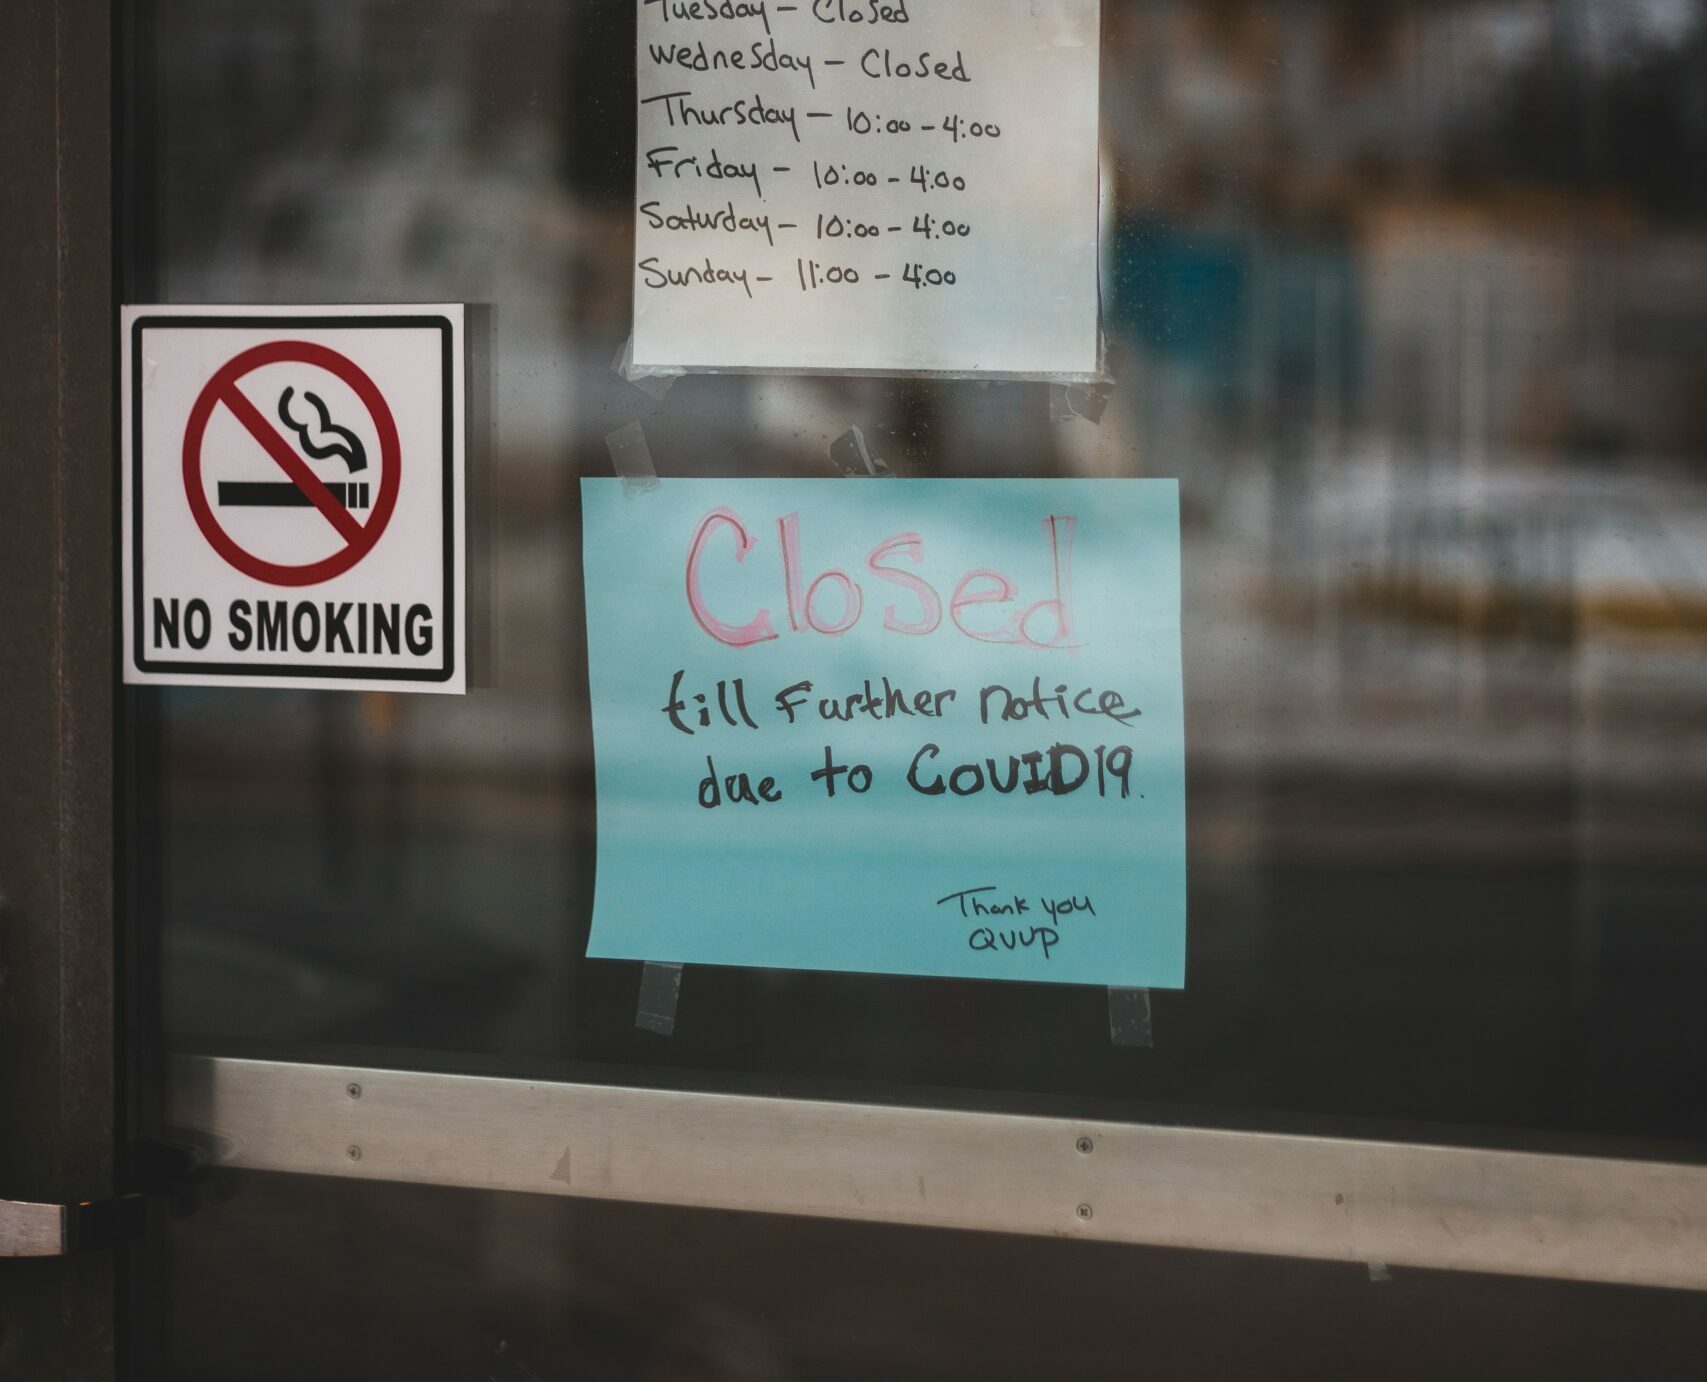 Tuesday - Closed
Wednesday - Closed
Thursday - 10:00 - 4:00
Friday - 10:00 - 4:00
Saturday - 10:00 - 4:00
Sunday - 11:00 - 4:00
NO SMOKING
Closed
till Further notice
due to COVID19.
Thank you
QVVP